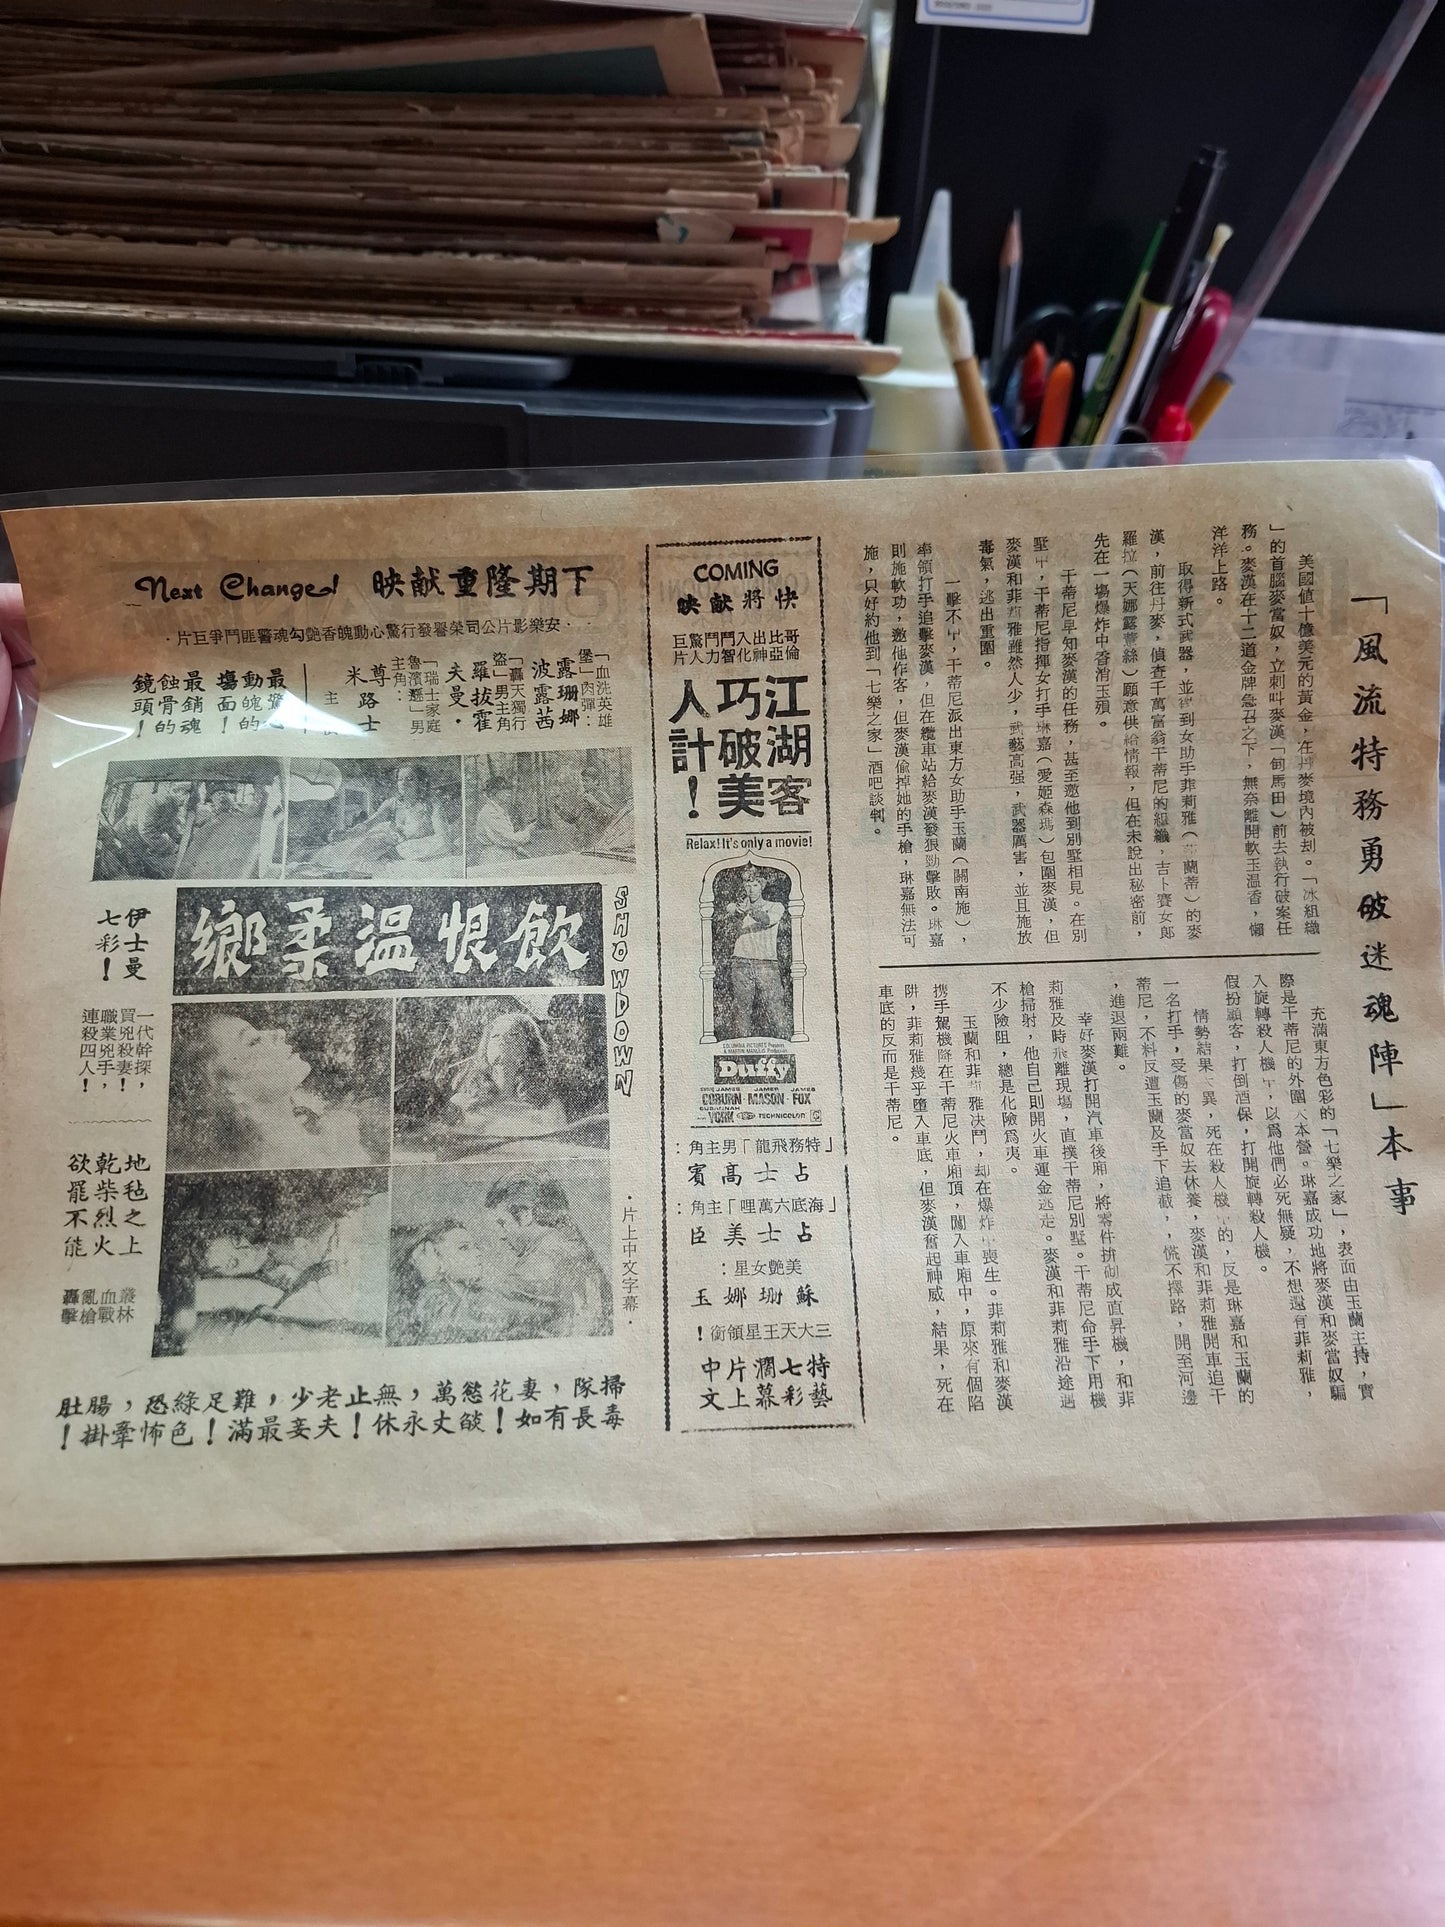 「風流特務勇破迷魂陣」本事
美國値十億美元的黃金，在丹麥境內被刦。「冰組織
」的首腦麥當奴，立刺叫麥漢「甸馬田）前去執行破案任
務。麥漢在十二道金牌急召之下，無奈離開軟玉温香，懶
洋洋上路。
取得新式武器，並得到女助手菲莉雅（蘭蒂）的麥
漢，前往丹麥，偵查千萬富翁干蒂尼的組織，吉卜賽女郎
羅拉（天娜露薏絲）願意供給情報，但在未說出秘密前，
先在一塲爆炸中香消玉殞。
干蒂尼早知麥漢的任務，甚至邀他到別墅相見。在別
墅中，干蒂尼指揮女打手琳嘉（愛姬森瑪）包圍麥漢，但
麥漢和菲莉雅雖然人少，武藝高强，武器厲害，並且施放
毒氣，逃出重圍。
一擊不中，干蒂尼派出東方女助手玉蘭（關南施），
率領打手追擊麥漢，但在纜車站給麥漢發狠勁擊敗。琳嘉
則施軟功，邀他作客，但麥漢偷掉她的手槍，琳嘉無法可
施，只好約他到「七樂之家」酒吧談判。
充滿東方色彩的「七樂之家」，表面由玉蘭主持，實
際是干蒂尼的外圍大本營。琳嘉成功地將麥漢和麥當奴騙
入旋轉殺人機中，以爲他們必死無疑，不想還有菲莉雅，
假扮顧客，打倒酒保，打開旋轉殺人機。
情勢結果大異，死在殺人機中的，反是琳嘉和玉蘭的
一名打手，受傷的麥當奴去休養，麥漢和菲莉雅開車追干
蒂尼，不料反遭玉蘭及手下追截，慌不擇路，開至河邊
，進退兩難。
幸好麥漢打開汽車後廂，將零件拚砌成直昇機，和菲
莉雅及時飛離現塲，直撲干蒂尼別墅。干蒂尼命手下用機
槍掃射，他自己則開火車運金逃走。麥漢和菲莉雅沿途遇
不少險阻，總是化險爲夷。
玉蘭和菲莉雅决鬥，却在爆炸中喪生。菲莉雅和麥漢
携手駕機降在干蒂尼火車廂頂，闖入車廂中，原來有個陷
阱，菲莉雅幾乎墮入車底，但麥漢奮起神威，結果，死在
車底的反而是干蒂尼。
COMING
快將獻映
哥倫比亞出神入化鬥智鬥力驚人巨片
江湖客巧破美人計！
Relax! It's only a movie!
COLUMBIA PICTURES Presents
Duffy
JAMES JAMES JAMES
COBURN·MASON·FOX
SUSANNAH
YORK TECHNICOLOR
「特務飛龍」男主角：
占士高賓
「海底六萬哩」主角：
占士美臣
美艷女星：
蘇珊娜玉
三大天王星領銜！
特藝七彩濶幕片上中文
下期隆重獻映 Next Changed
·安樂影片公司榮譽發行驚心動魄香艷勾魂警匪鬥爭巨片·
「血洗英雄堡」內彈：
露珊娜波露茜
「轟天獨行盜」男主角
羅拔霍夫曼·
「瑞士家庭魯濱遜」男主角：
尊米路士
主
最驚
動魄的
塲面！
最銷魂
蝕骨的
鏡頭！
飲恨温柔鄉
SHOWDOWN
伊士曼
七彩！
一代幹探，
買兇殺妻！
職業兇手，
連殺四人！
地毡之上
乾柴烈火
欲罷不能
叢林血戰
亂槍轟擊
·片上中文字幕·
掃毒隊長，妻有花如慾燄萬丈，無止永休！老少夫妾，難最足滿！綠色恐怖，腸牽肚掛！